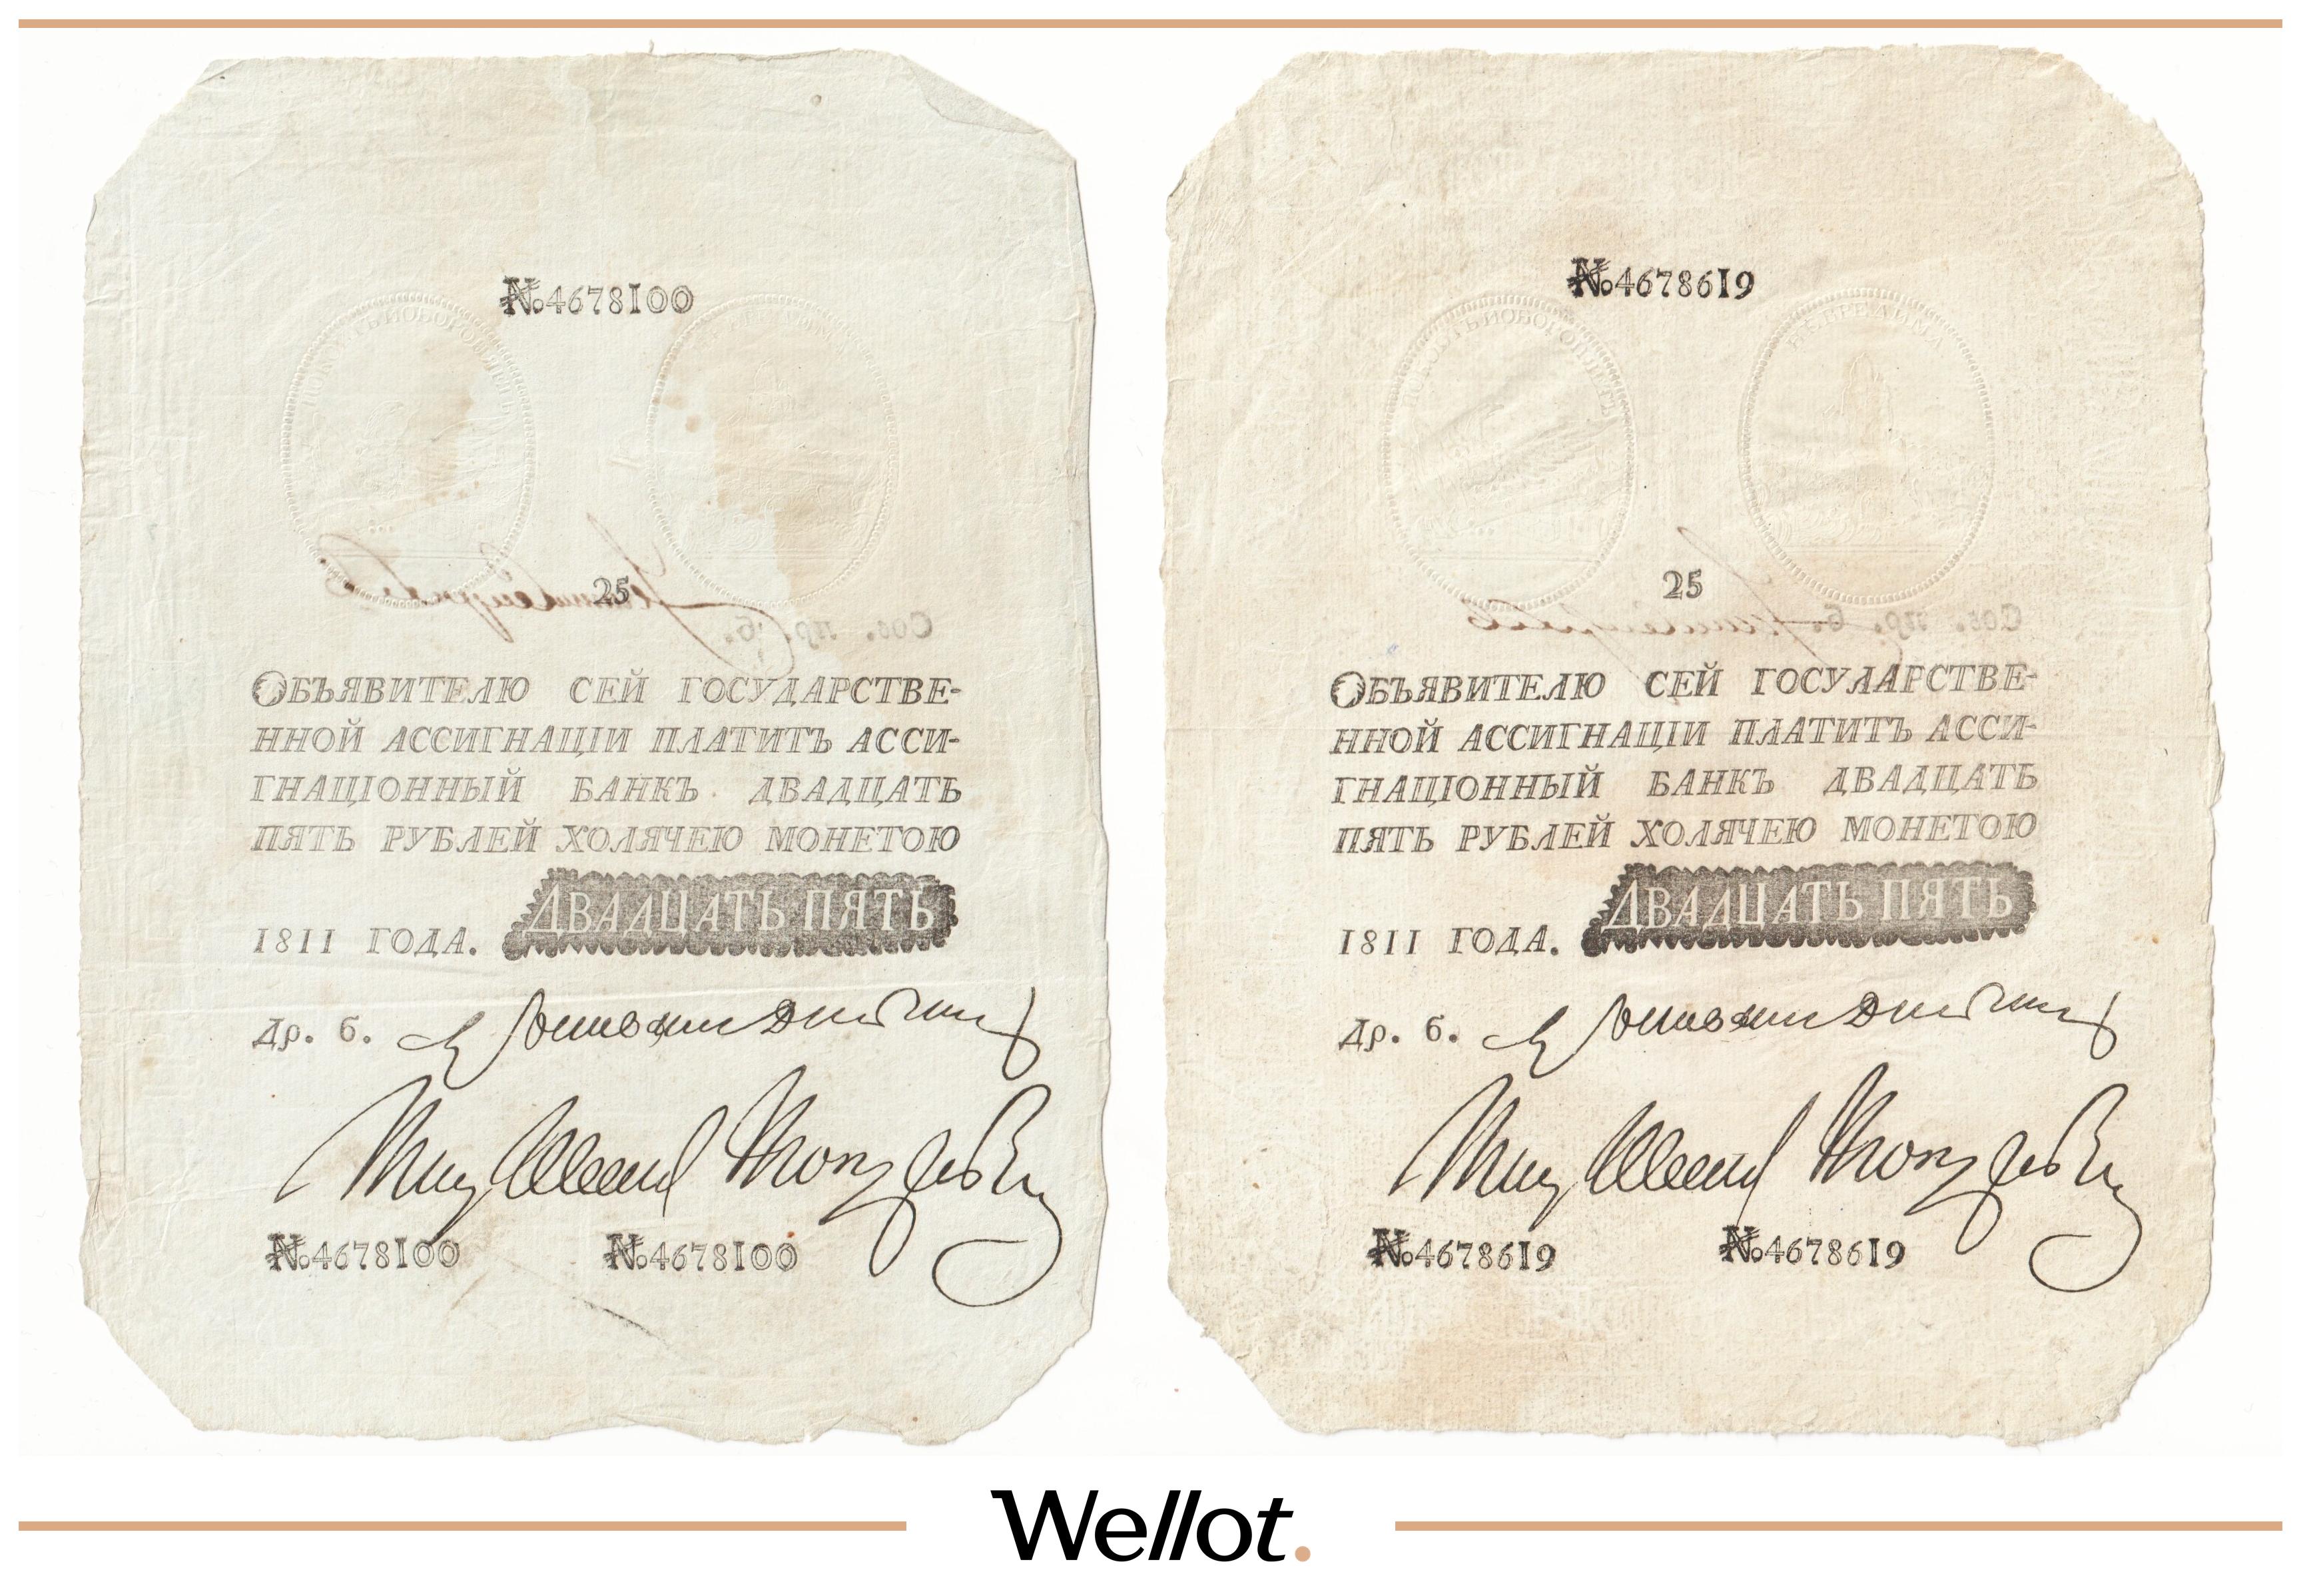 №4678100
25
ОБЪЯВИТЕЛЮ СЕЙ ГОСУДАРСТВЕ-
ННОЙ АССИГНАЦІИ ПЛАТИТЪ АССИ-
ГНАЦІОННЫЙ БАНКЪ ДВАДЦАТЬ
ПЯТЬ РУБЛЕЙ ХОЛЯЧЕЮ МОНЕТОЮ
1811 ГОДА. ДВАДЦАТЬ ПЯТЬ
др. б.
№4678100 №4678100
№4678619
25
ОБЪЯВИТЕЛЮ СЕЙ ГОСУЛАРСТВЕ-
ННОЙ АССИГНАЦІИ ПЛАТИТЪ АССИ-
ГНАЦІОННЫЙ БАНКЪ ДВАДЦАТЬ
ПЯТЬ РУБЛЕЙ ХОЛЯЧЕЮ МОНЕТОЮ
1811 ГОДА. ДВАДЦАТЬ ПЯТЬ
др. б.
№4678619 №4678619
Wellot.